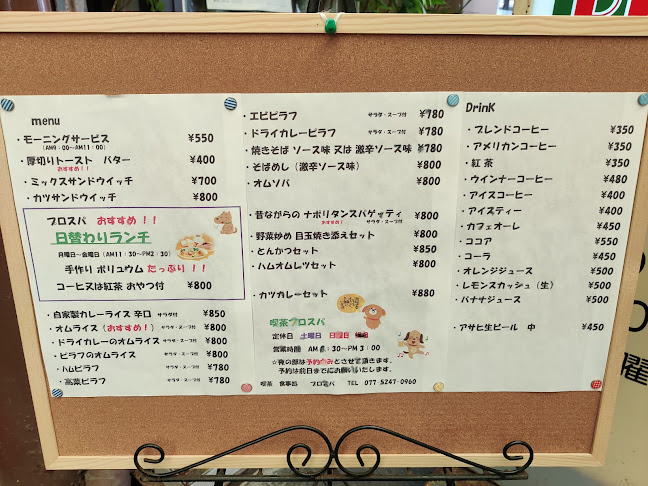 menu
・モーニングサービス ¥550
(AM9:00〜AM11:00)
・厚切りトースト バター ¥400
おすすめ!!
・ミックスサンドウイッチ ¥700
・カツサンドウイッチ ¥800
プロスパ おすすめ!!
日替わりランチ
月曜日〜金曜日(AM11:30〜PM2:30)
手作り ボリュウム たっぷり!!
コーヒ又は紅茶 おやつ付 ¥800
・自家製カレーライス 辛口 サラダ付 ¥850
・オムライス(おすすめ!) サラダ・スープ付 ¥800
・ドライカレーのオムライス サラダ・スープ付 ¥800
・ピラフのオムライス サラダ・スープ付 ¥800
・ハムピラフ サラダ・スープ付 ¥780
・高菜ピラフ サラダ・スープ付 ¥780
・エビピラフ サラダ・スープ付 ¥780
・ドライカレーピラフ サラダ・スープ付 ¥780
・焼きそば ソース味 又は 激辛ソース味 ¥780
・そばめし(激辛ソース味) ¥800
・オムソバ ¥800
・昔ながらの ナポリタンスパゲッティ ¥800
おすすめ! サラダ・スープ付
・野菜炒め 目玉焼き添えセット ¥800
・とんかつセット ¥850
・ハムオムレツセット ¥800
・カツカレーセット ¥880
喫茶プロスパ
定休日 土曜日 日曜日 祝日
営業時間 AM 8:30〜PM 3:00
☆夜の部は予約のみとさせて頂きます。
予約は前日までにお願いいたします。
喫茶 食事処 プロスパ TEL 077-5247-0960
Drink
・ブレンドコーヒー ¥350
・アメリカンコーヒー ¥350
・紅茶 ¥350
・ウインナーコーヒー ¥480
・アイスコーヒー ¥400
・アイスティー ¥400
・カフェオーレ ¥450
・ココア ¥550
・コーラ ¥450
・オレンジジュース ¥500
・レモンスカッシュ(生) ¥500
・バナナジュース ¥500
・アサヒ生ビール 中 ¥450
曜